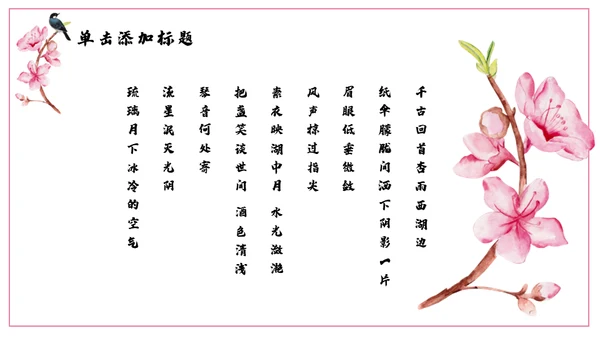 单击添加标题
千古回首杏雨西湖边
纸伞朦胧间洒下阴影一片
眉眼低垂微敛
风声掠过指尖
素衣映湖中月 水光潋滟
把盏笑谈世间 酒色清浅
琴音何处寄
淡星泯灭光阴
琉璃月下冰冷的空气